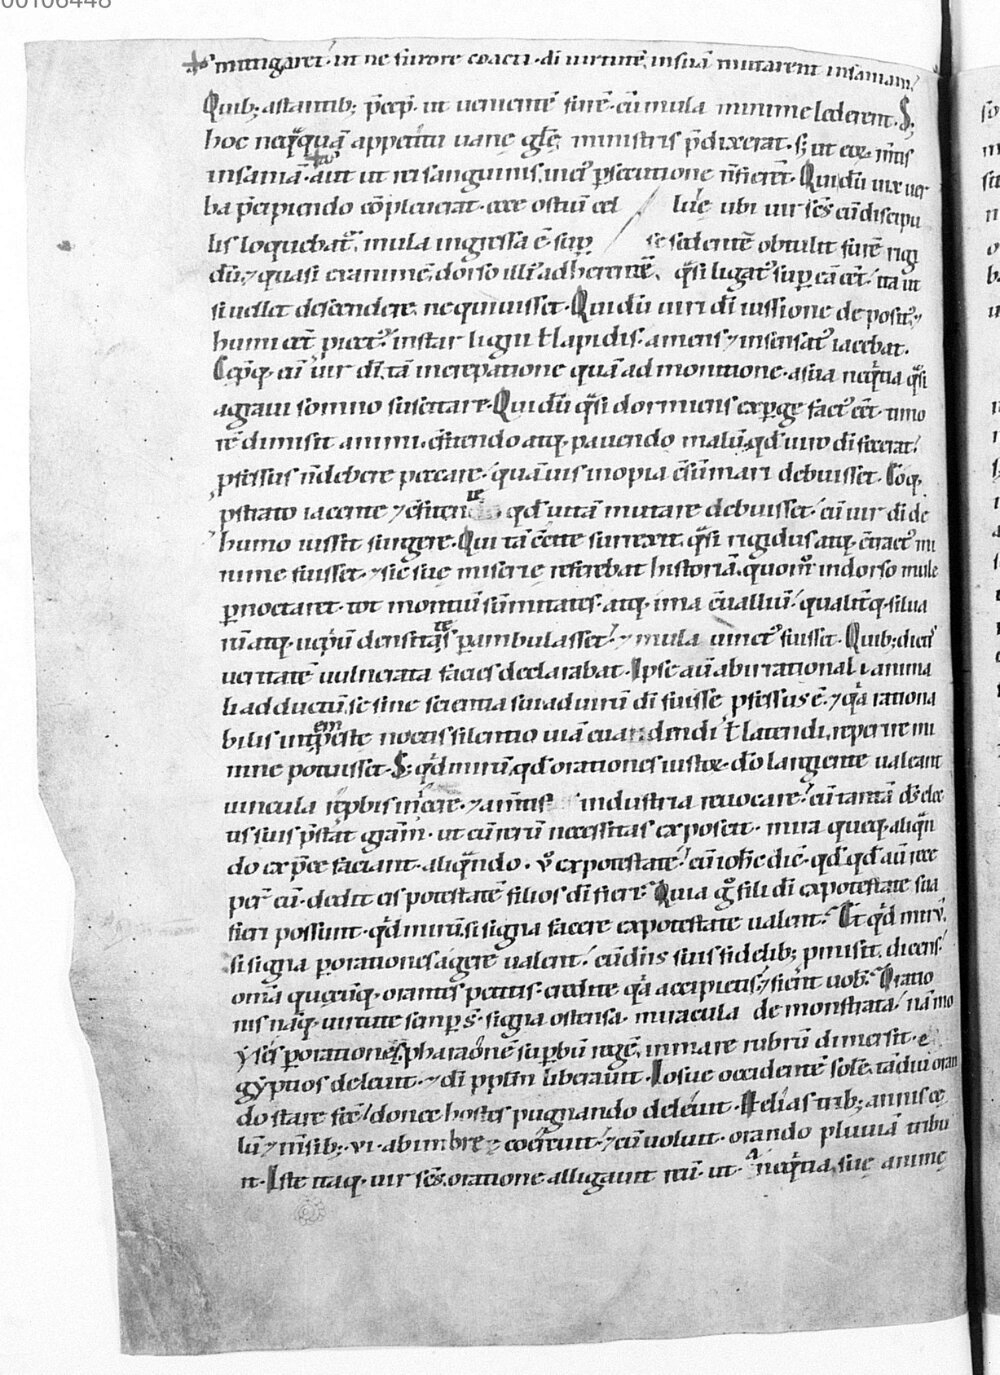 mitigaret ut ne furore coacti · di uirtute, insua mutarent insaniam
Quib; astantib; p̄cep̄ · ut uenientē furē · cū mula minime lederent · S;
hoc neq̄quā appetitu uanę glę ministris p̄dixerat · s; ut eoꝝ m̄tis
insaniā · aut ut rei sanguinis, in ei' p̄secutione n̄ fierēt · Qui dū uix uer
ba p̄cipiendo cōpleuerat · ecce ostiū cel lulę ubi uir sc̄s cū discipu
lis loquebat̄, mula ingressa ē · sup̄ se sedentē obtulit furē rigi
dū, ⁊ quasi exanimē, dorso illi' adherentē, q̄si ligat' sup eā eēt / ita ut
si uellet descendere, nequiuisset · Qui dū uiri di iussione deposit' ⁊
humi eēt piect', instar ligni ł lapidis · amens ⁊ insensat' iacebat ·
Cępq; eū uir di, tā increpatione quā ad monitione · a sua neq̄tia q̄si
a graui somno suscitare · Qui dū q̄si dormiens expge fact' eēt · timo
rē dimisit animi, c̄fitendo atq; pauendo malū, qd̄ uiro di fecerat /
p̄fessus n̄ debere peccare / quāuis inopia c̄sūmari debuisset · Cōq;
p̄strato iacente ⁊ c̄fitente qd̄ uitā mutare debuisset / eū uir di de
humo iussit surgere · Qui tā c̄cite surrexit, q̄si rigidus atq; c̄tract' mi
nime fuisset · ⁊ sic suę miserię referebat historiā, quom̄ in dorso mulę
pnoctaret · tot montiū sūmitates · atq; ima c̄ualliū / qualitq; silua
rū atq; uep̄iū densitates pambulasset / ⁊ mula uinct' fuisset · Quib; dictis
ueritatē uulnerata facies declarabat · Ipse aū ab irrationali anima
li adductū, se sine scientia sui ad uirū di fuisse p̄fessus ē · ⁊ q̄a rationa
bilis intempestę noctis silentio uiā euadendi, ł latendi, reperire mi
nime potuisset · S; qd̄ mirū, qd̄ orationes iustoꝝ · do langiente ualeant
uincula rep̄bis inicere · ⁊ a m̄tis industria reuocare? cū tantā d̄s elec
tis suis p̄stat grām · ut cū rerū necessitas exposcit · mira quęq; aliqn̄
do ex p̄ce faciant · aliqn̄do · ū ex potestate? cū ioh̄e dic̄ · qd̄ qd̄ aū rece
per̄ eū · dedit eis potestatē filios di fieri · Quia g° fili di ex potestate sua
fieri possunt · qd̄ mirū si signa facere ex potestate ualent? Et qd̄ mirū,
si signa porationes agere ualent / cū dn̄s suis fidelib; p̄misit, dicens /
om̄ia quęcūq; orantes petitis · credite q̄a accipietis, ⁊ fient uob · Oratio
nis naq; uirtute semp s̄ · signa ostensa · miracula demonstrata / nā mo
ẏses porationes, pharaonē supbū regē, in mare rubrū dimersit · e
gẏptios deleuit · ⁊ di pplm̄ liberauit · Iosue occidentē solē, tādiu oran
do stare fec̄ / donec hostes pugnando deleuit · Helias trib; annis cę
lū ⁊ m̄sib; · vi · ab imbre coercuit / ⁊ cū uoluit · orando pluuiā tribu
it · Iste itaq; uir sc̄s, oratione alligauit reū · ut · a neq̄tia, suę animę